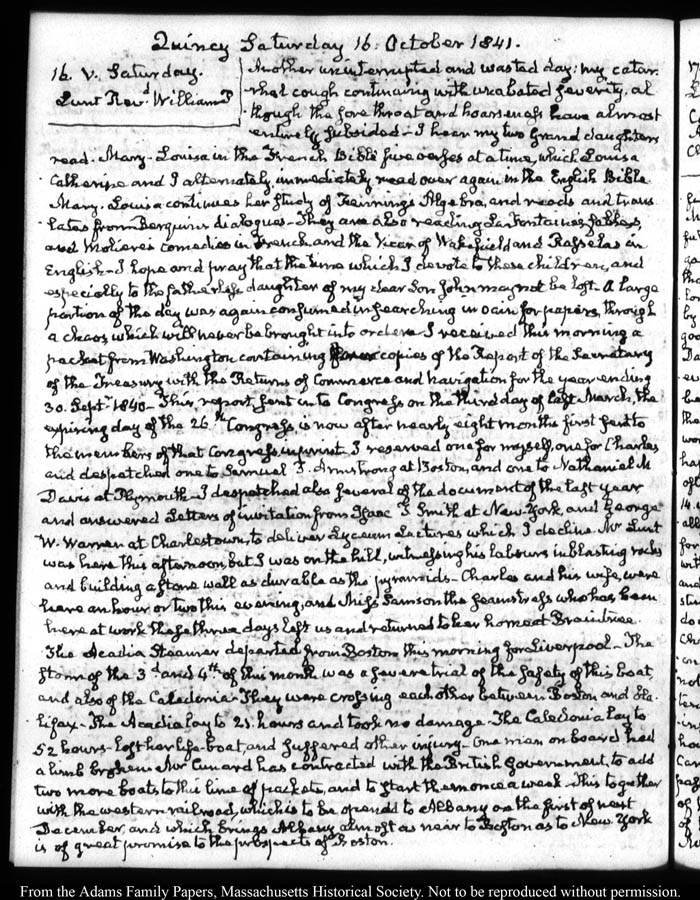 Quincy Saturday 16. October 1841.
16. V. Saturday.
Lunt Revd. William P
Another uninterrupted and wasted day; my catar-
rhal cough continuing with unabated severity, al-
though the sore throat and hoarseness have almost
entirely subsided. I hear my two Grand daughters
read. Mary-Louisa in the French Bible five verses at a time, which Louisa
Catherine and I alternately, immediately read over again in the English Bible.
Mary-Louisa continues her study of Algebra, and reads and trans-
lates from Berquin's dialogues. They are also reading La Fontaine's fables,
and Moliere's comedies in French, and the Vicar of Wakefield and Rasselas in
English. I hope and pray that the time which I devote to these children, and
especially to the fatherless daughter of my dear Son John may not be lost. A large
portion of the day was again consumed in searching in vain for papers, through
a chaos, which will never be brought into order. I received this morning a
packet from Washington containing copies of the Report of the Secretary
of the Treasury with the Returns of Commerce and navigation for the year ending
30. Septr. 1840. This report sent in to Congress on the third day of last March, the
expiring day of the 26th. Congress is now after nearly eight months first sent to
the members of that Congress in print. I reserved one for myself, one for Charles
and despatched one to Samuel T. Armstrong at Boston, and one to Nathaniel M
Davis at Plymouth. I despatched also several of the documents of the last year
and answered Letters of invitation from Isaac T Smith at New-York, and George
W. Warren at Charlestown, to deliver Lyceum Lectures which I decline. Mr. Lunt
was here this afternoon but I was on the hill, witnessing his labours in blasting rocks
and building a stone wall as durable as the pyramids. Charles and his wife, were
here an hour or two this evening, and Miss Samson the seamstress who has been
here at work these three days left us and returned to her home at Braintree.
The Acadia Steamer departed from Boston this morning for Liverpool. The
storm of the 3d. and 4th. of this month was a severe trial of the safety of this boat,
and also of the Caledonia. They were crossing each other between Boston and Ha-
lifax. The Acadia lay to 21. hours and took no damage. The Caledonia lay to
52 hours. lost her life-boat and suffered other injury. One man on board had
a limb broken. Mr Cunard has contracted with the British Government, to add
two more boats to this line of packets, and to start them once a week. This together
with the western railroad, which is to be opened to Albany on the first of next
December, and which brings Albany almost as near to Boston as to New York
is of great promise to the prospects of Boston.
From the Adams Family Papers, Massachusetts Historical Society. Not to be reproduced without permission.